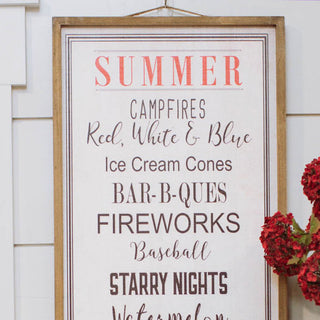 SUMMER
CAMPFIRES
Red, White & Blue
Ice Cream Cones
BAR-B-QUES
FIREWORKS
Baseball
STARRY NIGHTS
Watermelon